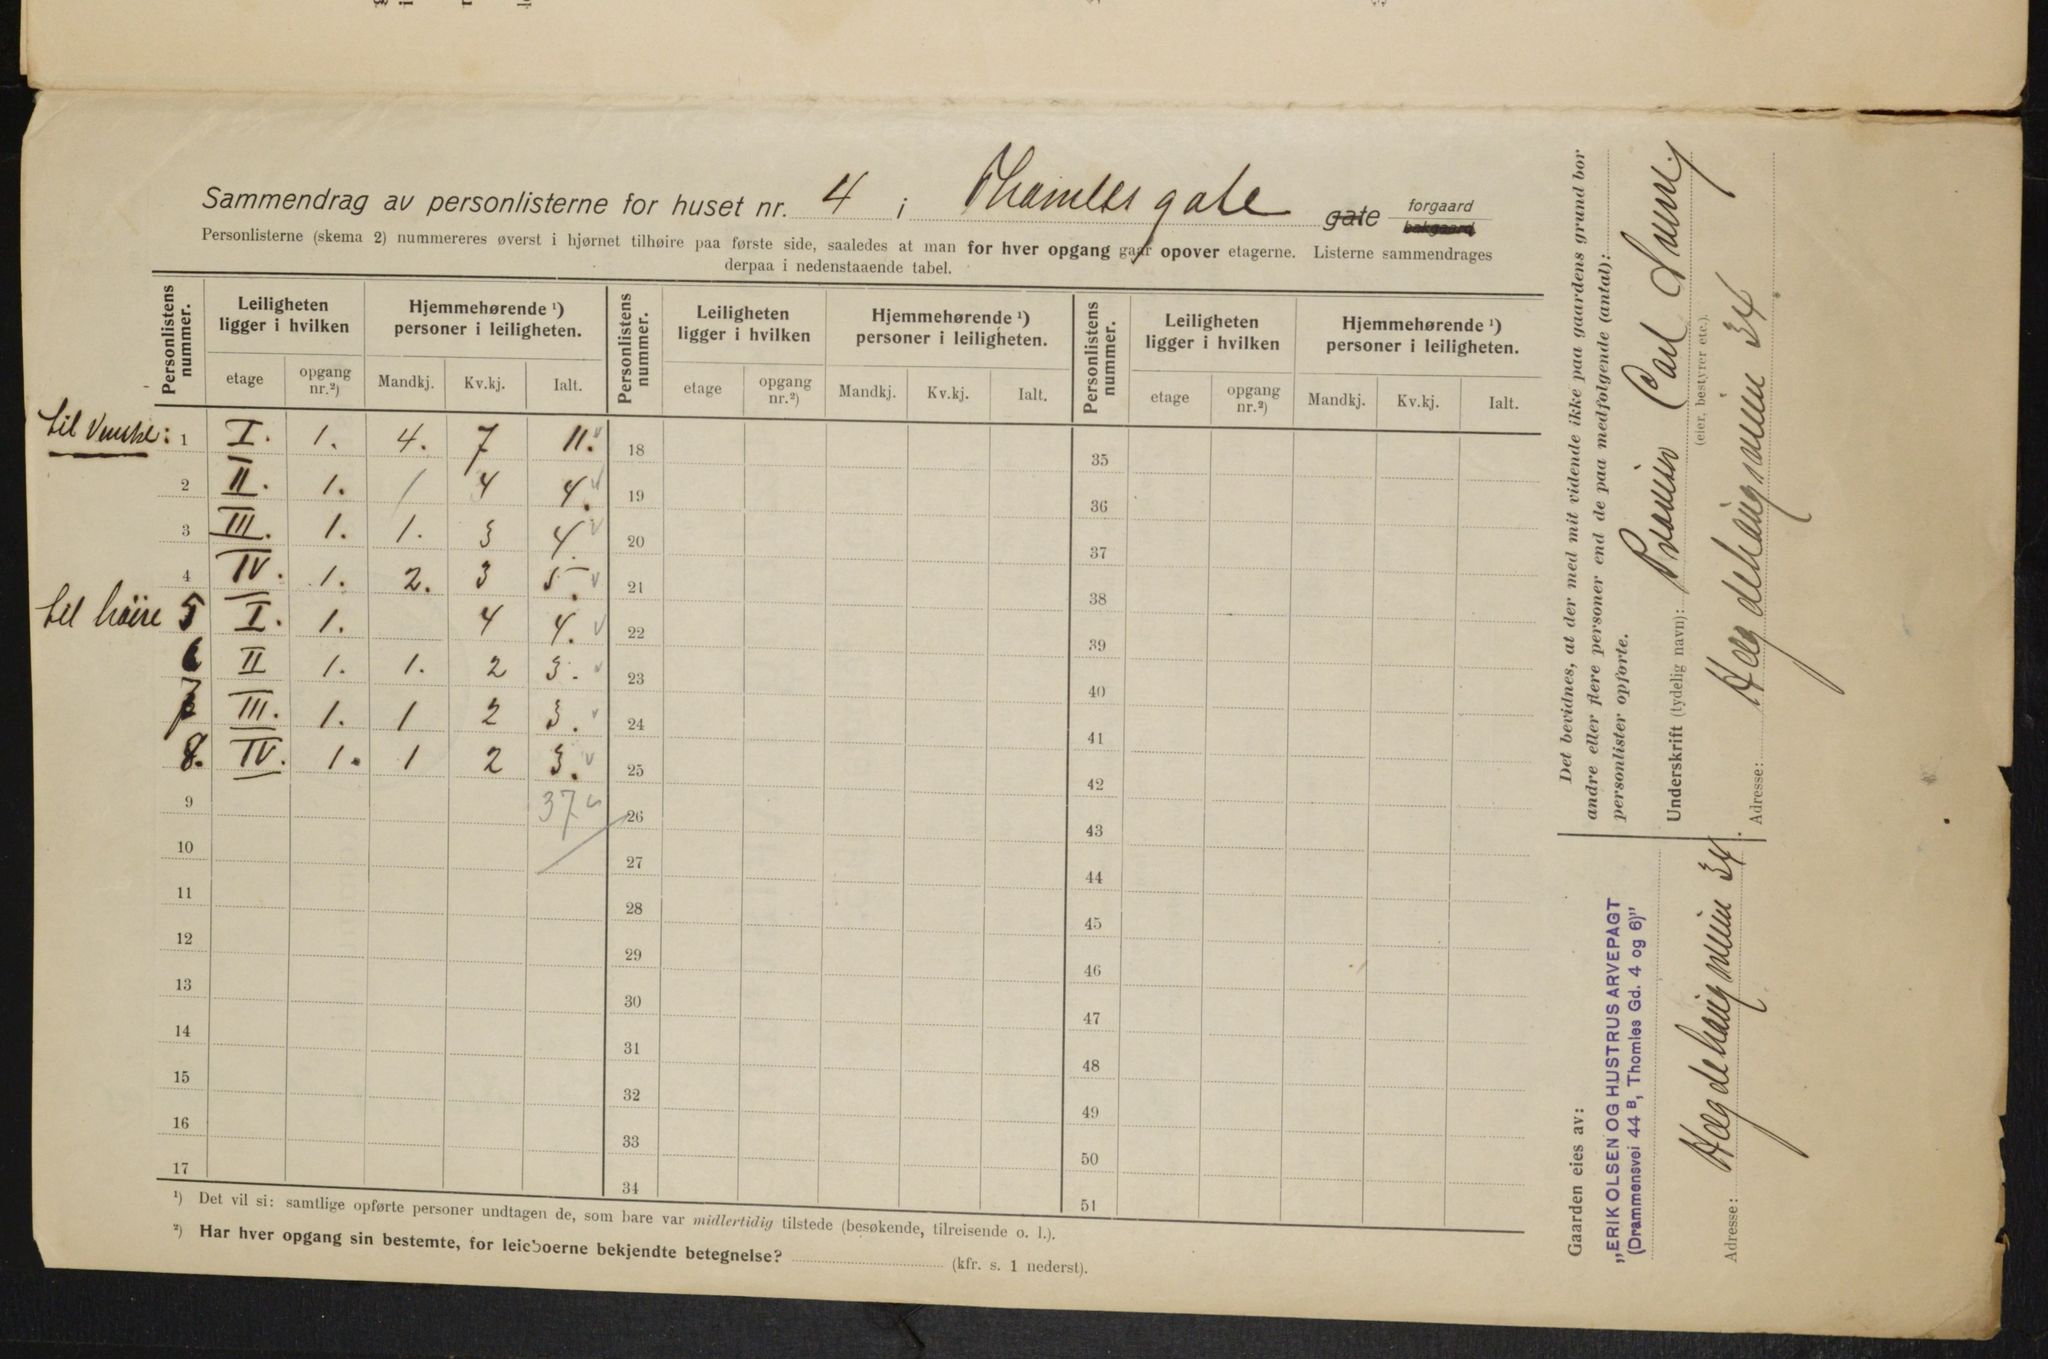 Sammendrag av personlisterne for huset nr. 4 i Thomles gate gate forgaard bakgaard
Personlisterne (skema 2) nummereres øverst i hjørnet tilhøire paa første side, saaledes at man for hver opgang gaar opover etagerne. Listerne sammendrages
derpaa i nedenstaaende tabel.
Personlistens nummer. Leiligheten ligger i hvilken Hjemmehørende ¹) personer i leiligheten. Personlistens nummer. Leiligheten ligger i hvilken Hjemmehørende ¹) personer i leiligheten. Personlistens nummer. Leiligheten ligger i hvilken Hjemmehørende ¹) personer i leiligheten.
etage opgang nr.²) Mandkj. Kv.kj. Ialt. etage opgang nr.²) Mandkj. Kv.kj. Ialt. etage opgang nr.²) Mandkj. Kv.kj. Ialt.
til Venstre: 1 I. 1. 4. 7 11. 18 35
2 II. 1. / 4 4. 19 36
3 III. 1. 1. 3 4. 20 37
4 IV. 1. 2. 3 5. 21 38
til høire 5 I. 1. 4 4. 22 39
6 II 1. 1. 2 3. 23 40
7 III. 1. 1 2 3. 24 41
8. IV. 1. 1 2 3. 25 42
9 37 26 43
10 27 44
11 28 45
12 29 46
13 30 47
14 31 48
15 32 49
16 33 50
17 34 51
¹) Det vil si: samtlige opførte personer undtagen de, som bare var midlertidig tilstede (besøkende, tilreisende o. l.).
²) Har hver opgang sin bestemte, for leieboerne bekjendte betegnelse? (kfr. s. 1 nederst).
Det bevidnes, at der med mit vidende ikke paa gaardens grund bor
andre eller flere personer end de paa medfølgende (antal):
personlister opførte.
Underskrift (tydelig navn): Carl
(eier, bestyrer etc.).
Adresse: Hægdehaugsveien 34
Gaarden eies av:
„ERIK OLSEN OG HUSTRUS ARVEPAGT
(Drammensvei 44 B, Thomles Gd. 4 og 6)"
Adresse: Hægdehaugsveien 34.